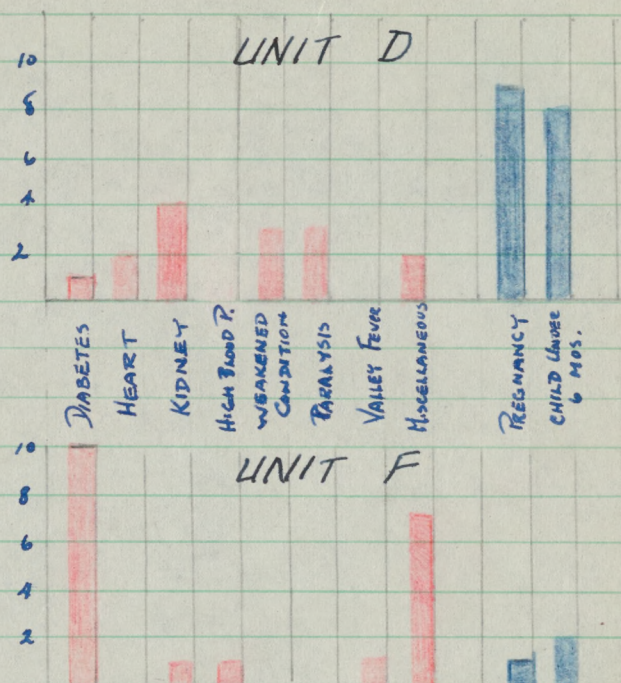 UNIT D
10
8
6
4
2
DIABETES
HEART
KIDNEY
HIGH BLOOD P.
WEAKENED
CONDITION
PARALYSIS
VALLEY FEVER
MISCELLANEOUS
PREGNANCY
CHILD UNDER
6 MOS.
UNIT F
10
8
6
4
2